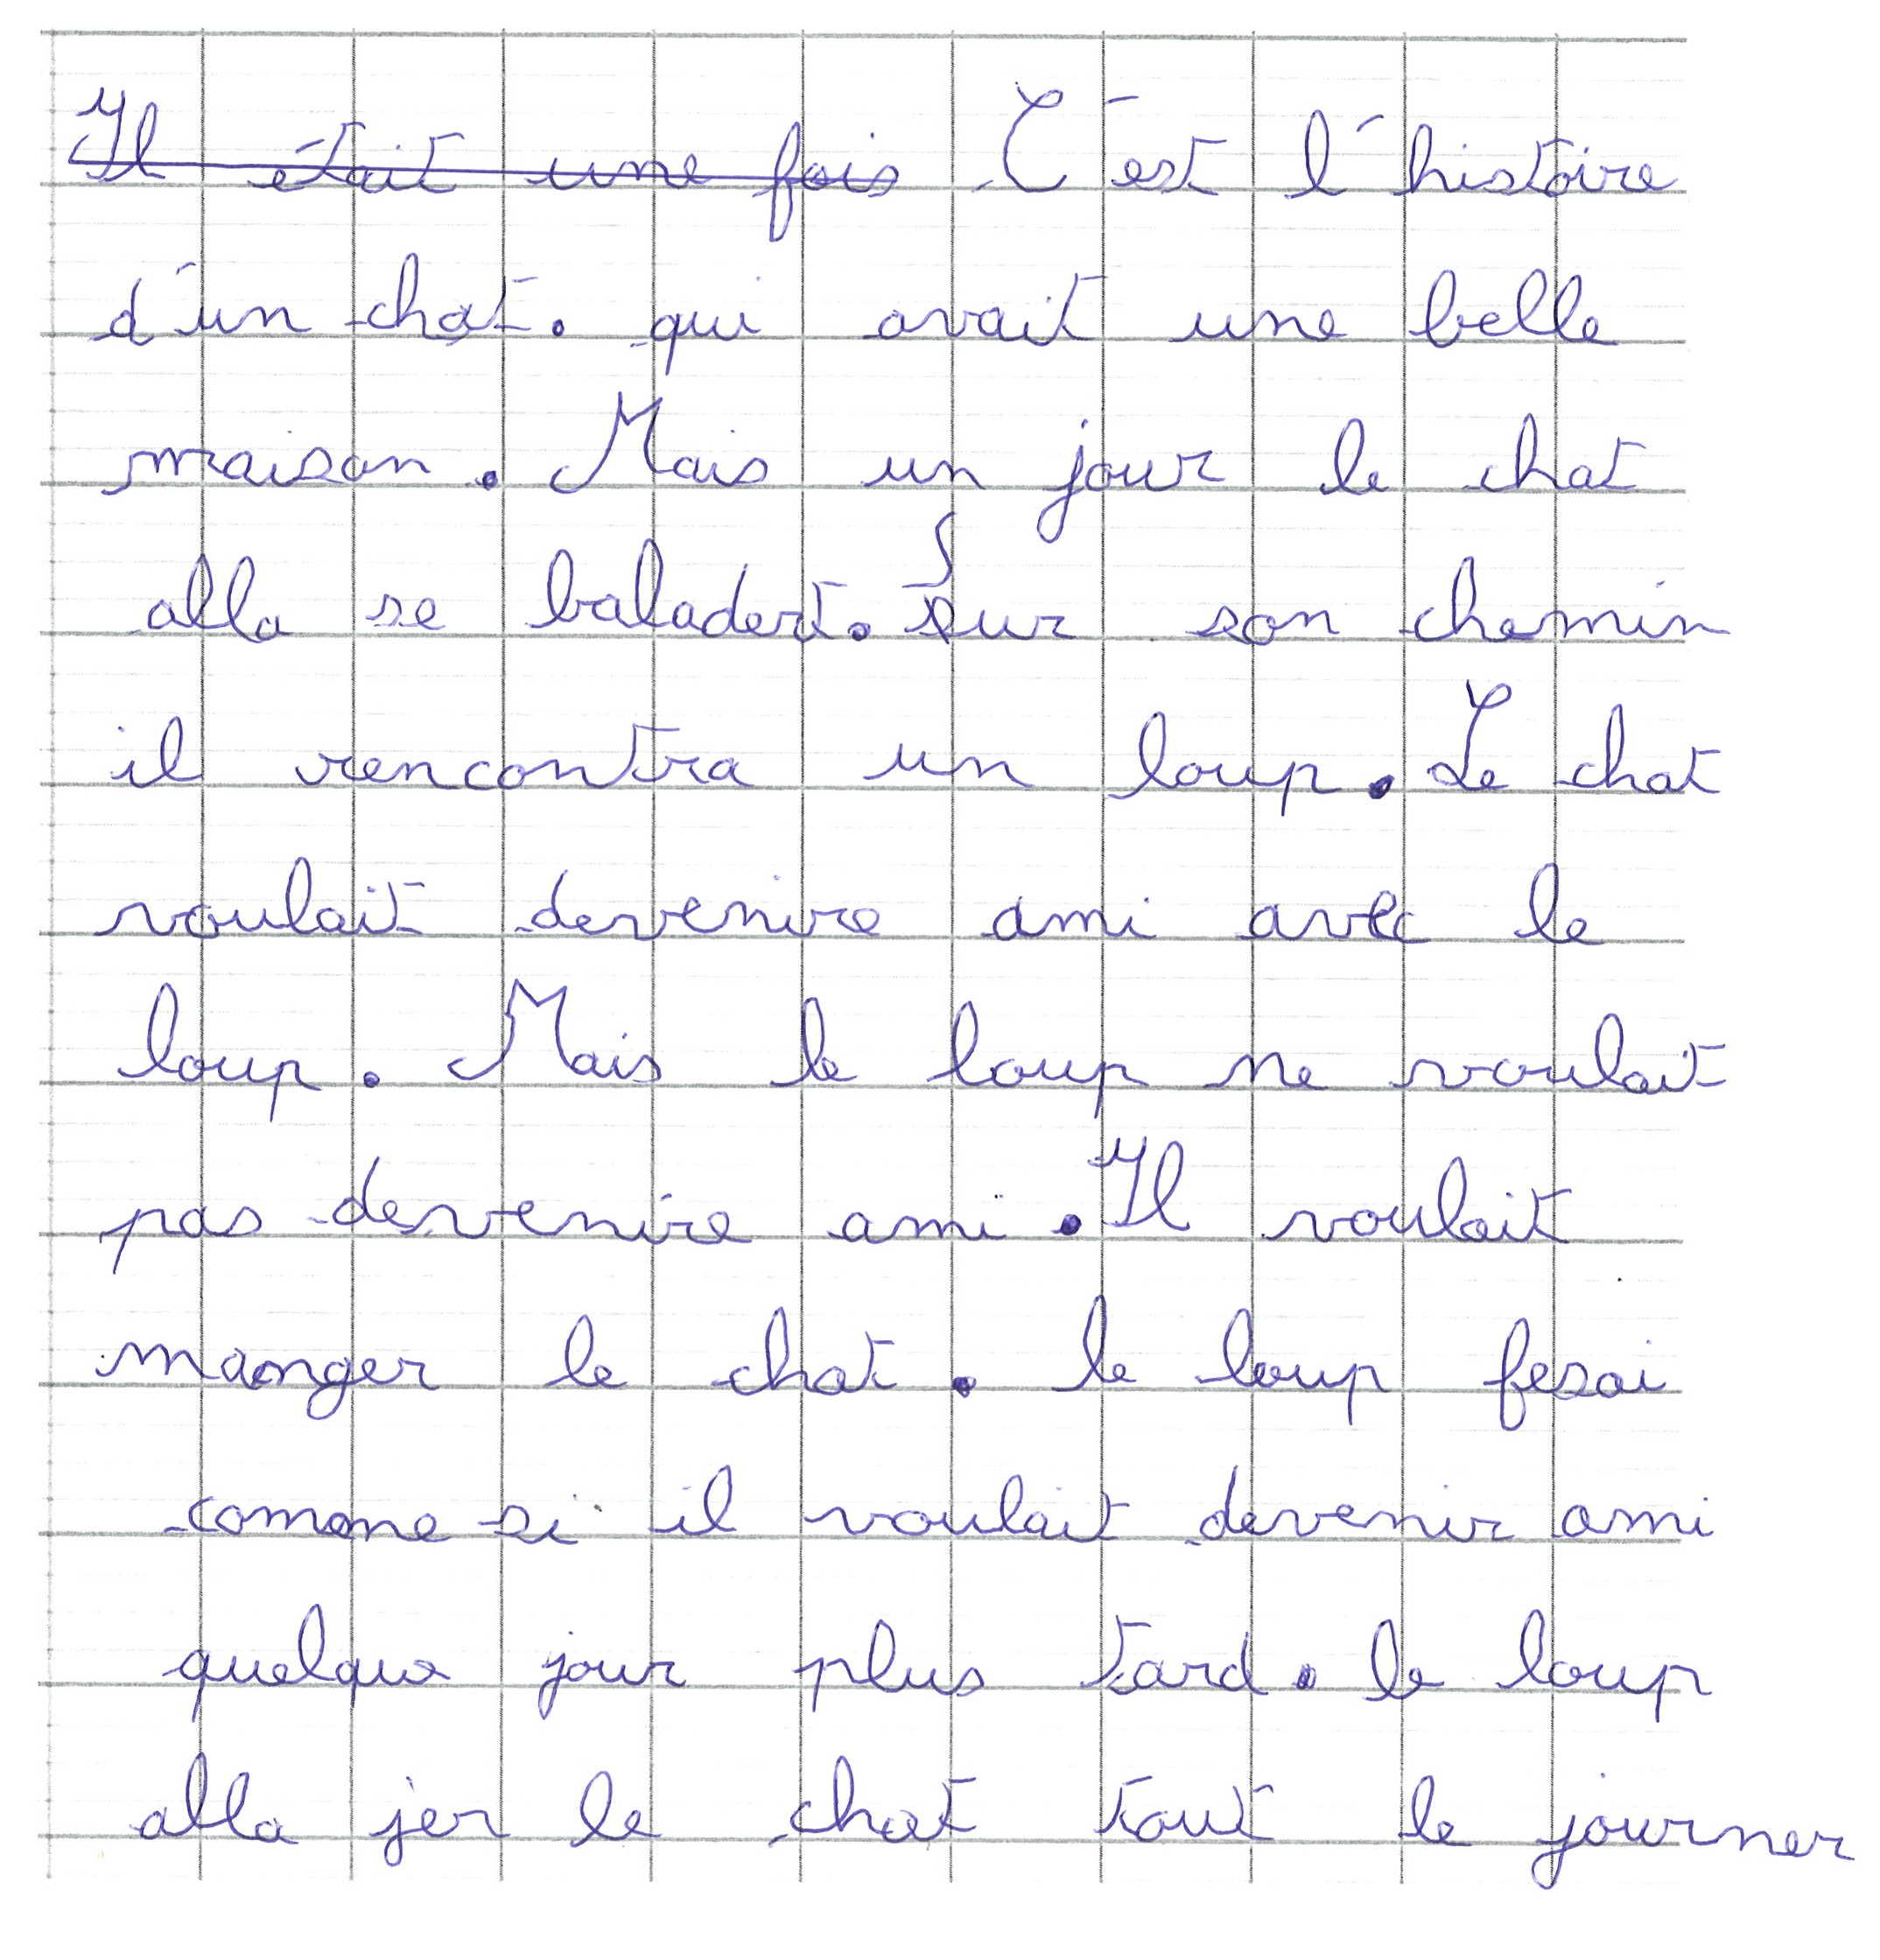 Il était une fois C'est l'histoire
d'un chat. qui avait une belle
maison. Mais un jour le chat
alla se baladert. Sur son chemin
il rencontra un loup. Le chat
voulait devenire ami avec le
loup. Mais le loup ne voulait
pas devenire ami. Il voulait
manger le chat. le loup fesai
comme si il voulait devenir ami
quelque jour plus tard. le loup
alla jer le chat tout le journer